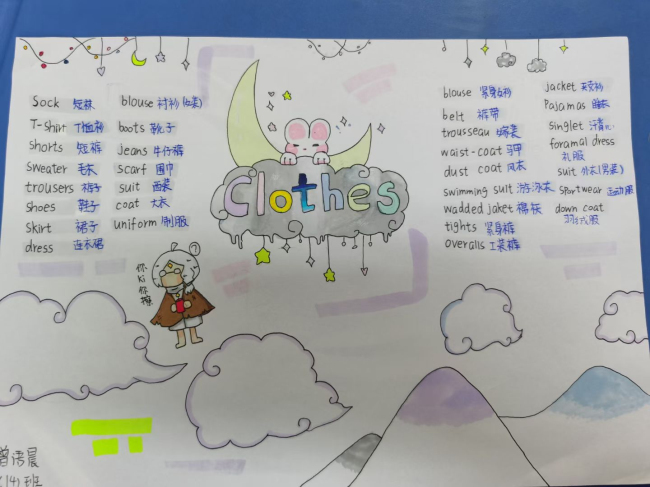 Sock 短袜
T-Shirt T恤衫
Shorts 短裤
Sweater 毛衣
trousers 裤子
Shoes 鞋子
Skirt 裙子
dress 连衣裙
blouse 衬衫(女装)
boots 靴子
jeans 牛仔裤
scarf 围巾
suit 西装
coat 大衣
uniform 制服
Clothes
你
Ki
你
blouse 紧身女衫
belt 裤带
trousseau 嫁装
waist-coat 马甲
dust coat 风衣
swimming suit 游泳衣
wadded jaket 棉袄
tights 紧身裤
overalls 工装裤
jacket
Pajamas 睡衣
Singlet
foramal dress
礼服
suit 外衣(男装)
sportwear 运动服
down coat
羽绒服
曾语晨
(14)班